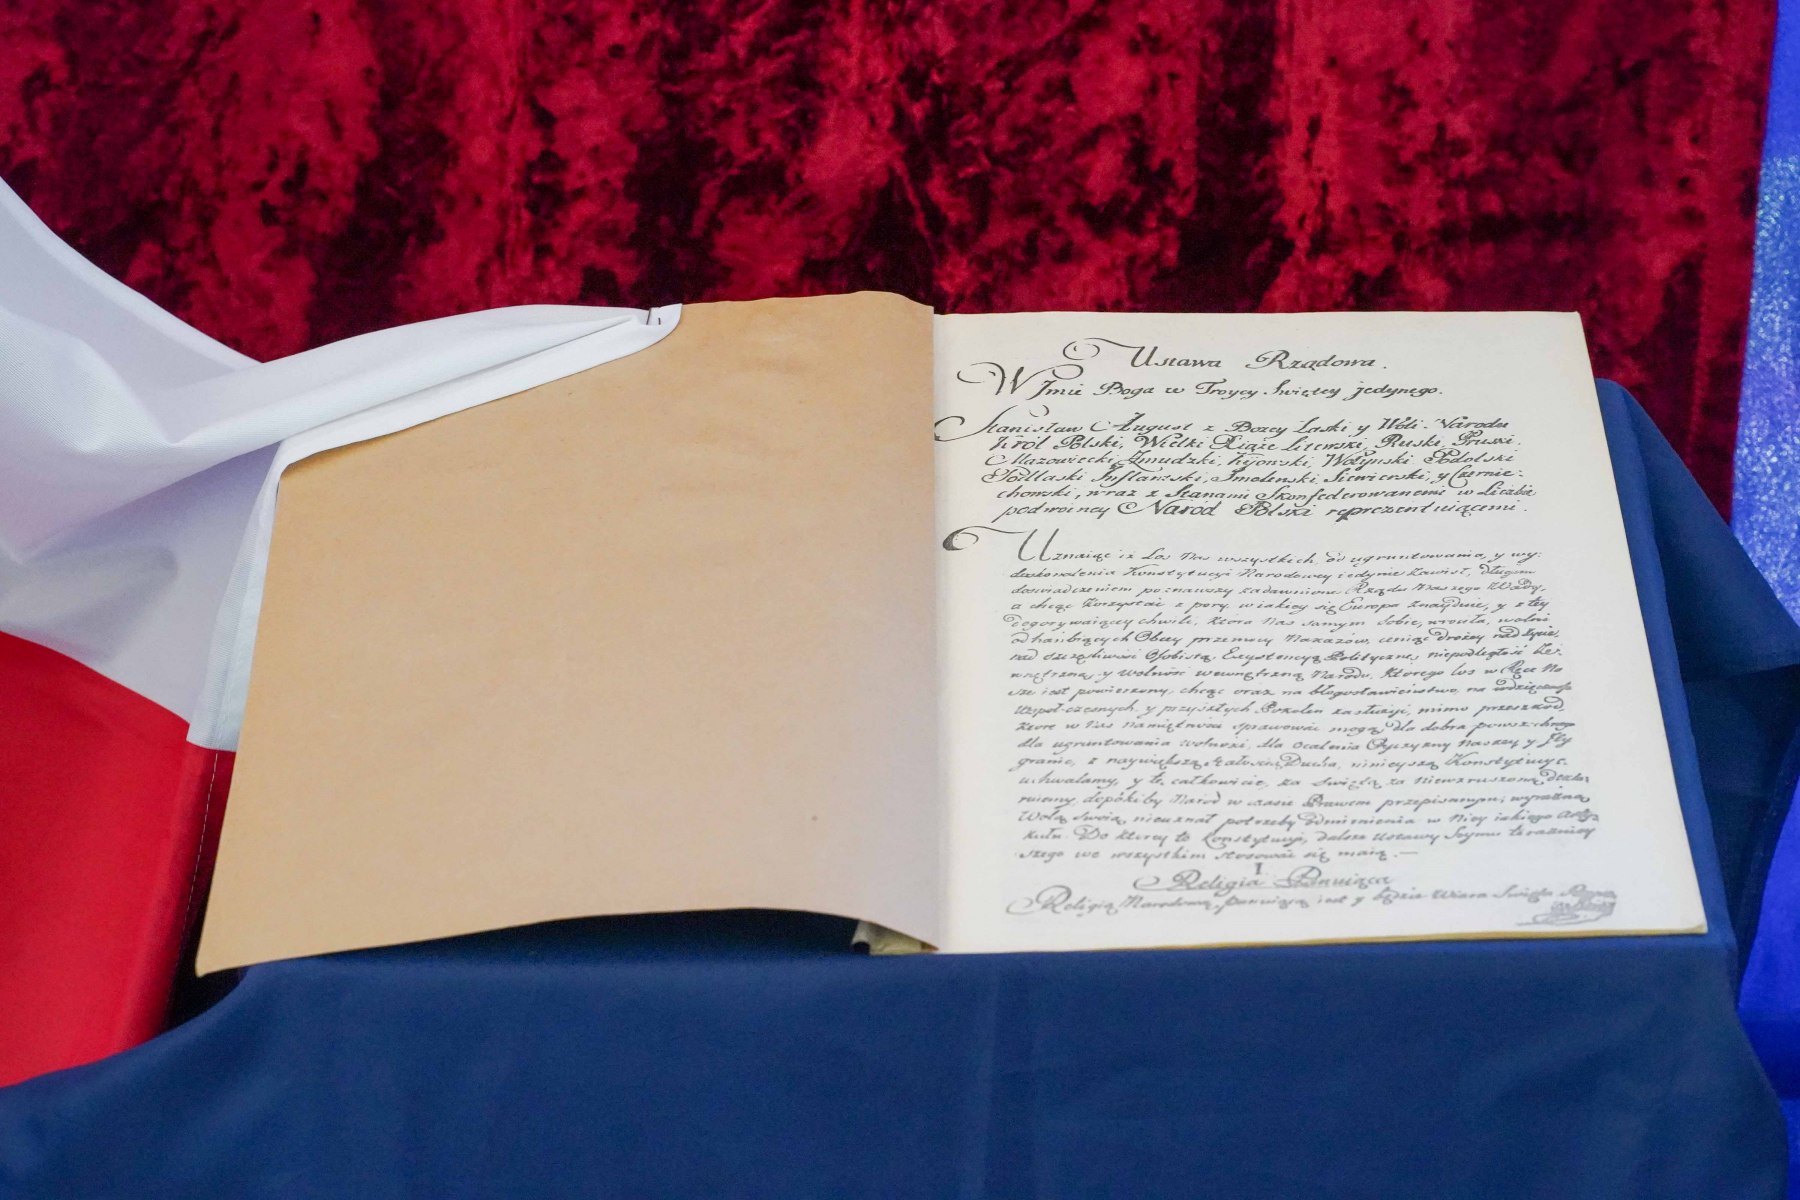 Ustawa Rządowa.
W Imie Boga w Troycy Swiętey jedynego.
Stanisław August z Bozey Łaski y Woli Narodu
Król Polski, Wielki Xiąże Litewski, Ruski, Pruski,
Mazowiecki, Zmudzki, Kijowski, Wołynski, Podolski
Podlaski Inflantski, Smolenski Siewierski, y Czernie-
chowski, wraz z Stanami Skonfederowanemi w Liczbie
podwoiney Naród Polski reprezentuiącemi.
Uznaiąc iż Los Nas wszystkich, od ugruntowania, y wy-
doskonalenia Konstytucyi Narodowey iedynie zawisł, długim
doswiadczeniem poznawszy zadawnione Rządu Naszego Wady,
a chcąc korzystać z pory, w iakiey się Europa znayduie, y z tey
dogorywaiącey chwili, która Nas samym Sobie, wrociła, wolni
od hanbiących Obcey przemocy Nakazów, ceniąc drożey nad życie,
nad szczęsliwość Osobistą, Exystencyą Polityczną, niepodległość Ze-
wnętrzną, y wolność wewnętrzną Narodu, ktorego los w Ręce Na-
sze iest powierzony, chcąc oraz na błogosławieństwo, na wdzięczność
Wspoł-czesnych, y przyszłych Pokolen zasłużyć, mimo przeszkod,
ktore w Nas namiętności sprawować mogą, dla dobra powszechnego
dla ugruntowania wolności, dla ocalenia Oyczyzny Naszey y Jey
granic, z naywiększą stałością Ducha, ninieyszą Konstytucyę
uchwalamy, y tę całkowicie, za Swiętą, za niewzruszoną dekla-
ruiemy, dopókiby Naród w czasie Prawem przepisanym, wyraźną
Wolą swoią, nieuznał potrzeby odmienienia w Niey iakiego Arty-
kułu. Do ktorey to Konstytucyi, dalsze Ustawy Seymu teraźniey-
szego we wszystkim stosować się maią. —
I
Religia Panuiąca
Religią Narodową, panuiącą iest y będzie Wiara Swięta